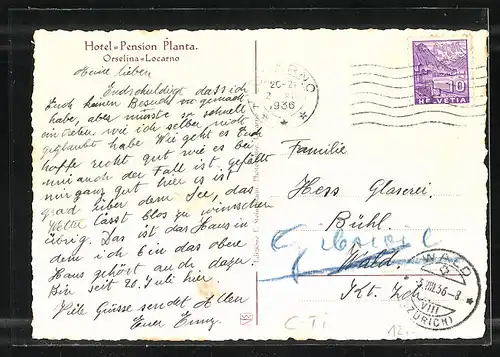 Hotel=Pension Planta.
Orselina=Locarno
Meine lieben
Entschuldigt dass ich
Euch keinen Besuch gemacht
habe, aber musste so schnell
eintreten, wie ich selber nicht
geglaubt habe Wie geht es Euch
hoffe recht gut wie es bei
mir auch der Fall ist, gefällt
mir ganz gut hier es ist
grad über dem See, das
Wetter lässt blos zu wünschen
übrig. Das ist das Haus in
dem ich bin das obere
Haus gehört auch dazu.
Bin seit 20. Juli hier.
Viele Grüsse sendet Allen
Euer
LOCARNO
1936
10
HELVETIA
Familie
Hess Glaserei.
Bühl.
Wald.
Kt. Zch
WALD
3.VIII.36-8
VIII
(ZÜRICH)